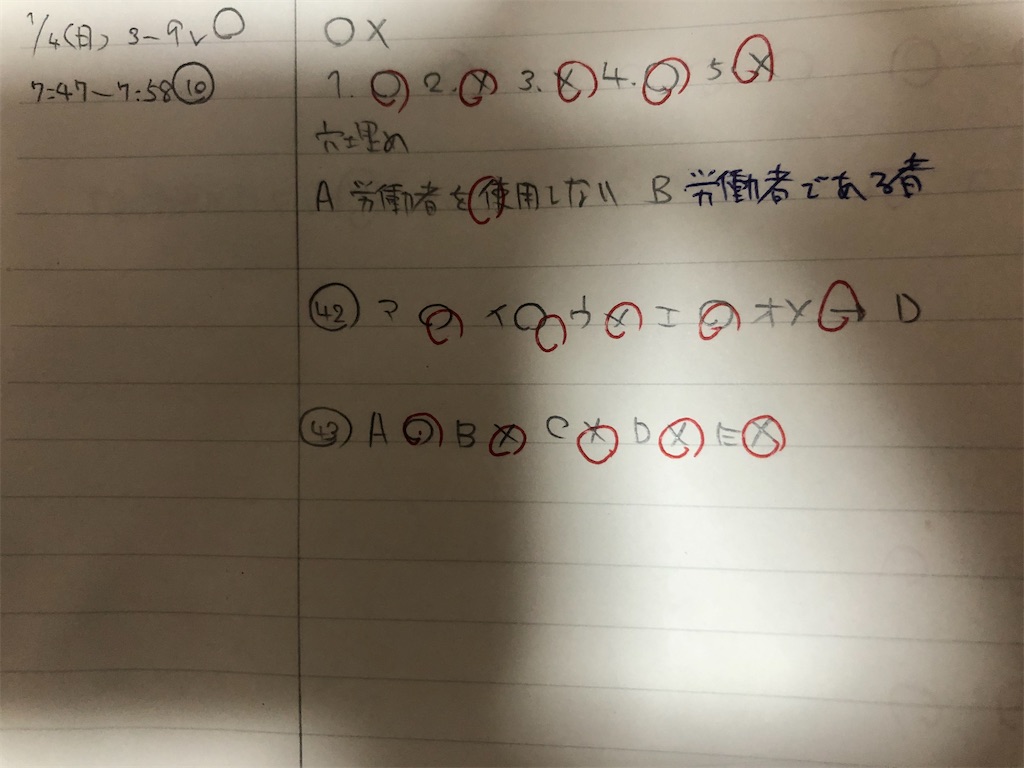 1/4(日) 3-9✓○
7:47〜7:58⑩
○×
1. ○ 2. × 3. × 4. ○ 5 ×
穴埋め
A 労働者を使用しない B 労働者である者
㊷ ア ○ イ○ ウ × エ ○ オ× → D
㊸ A ○ B × C × D × E ×